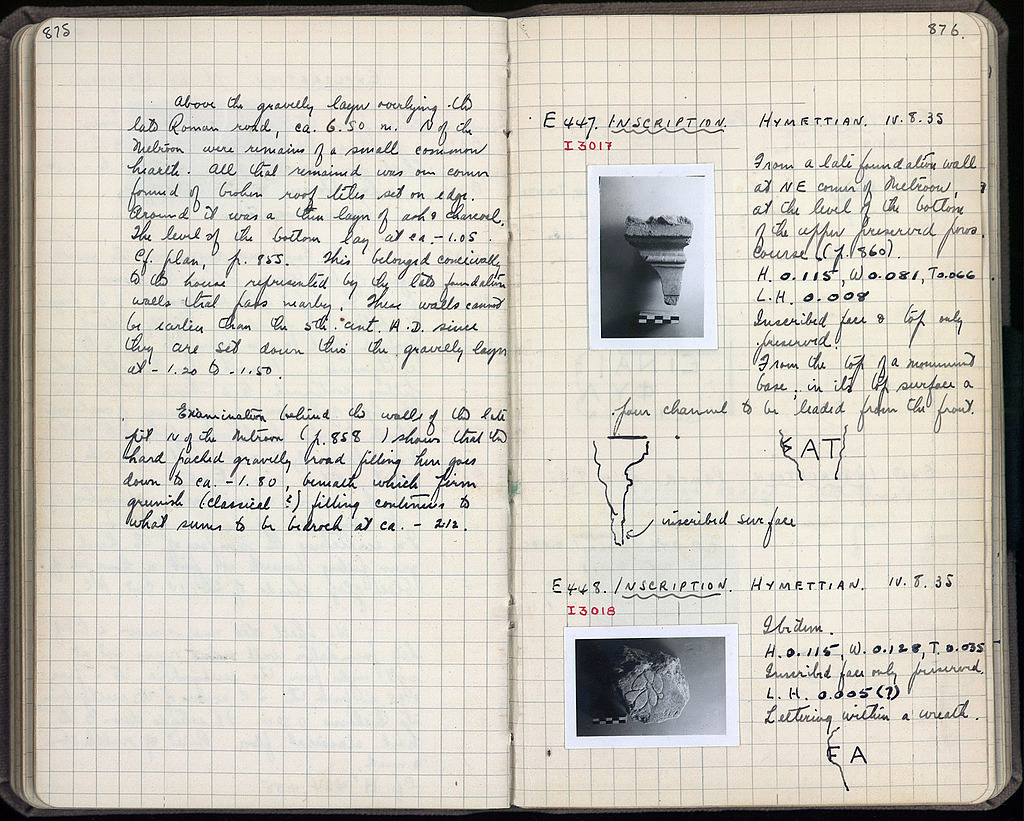 875
Above the gravelly layer overlying the
late Roman road, ca. 6.50 m. N of the
Metroon were remains of a small common
hearth. All that remained was one corner
formed of broken roof tiles set on edge.
Around it was a thin layer of ash & charcoal.
The level of the bottom lay at ca. -1.05.
Cf. plan, p. 855. This belonged conceivably
to the house represented by the late foundation
walls that pass nearby. These walls cannot
be earlier than the 5th. cent. A.D. since
they are set down thro the gravelly layer
at -1.20 to -1.50.
Examination behind the walls of the late
pit N of the Metroon (p. 858 ) shows that the
hard packed gravelly road filling here goes
down to ca. -1.80, beneath which firm
greenish (classical ?) filling continues to
what seems to be bedrock at ca. - 2.12.
876.
E 447. INSCRIPTION. HYMETTIAN. IV.8.35
I 3017
From a late foundation wall
at NE corner of Metroon,
at the level of the bottom
of the upper preserved poros
course (p. 860).
H. 0.115, W 0.081, T 0.066
L.H. 0.008
Inscribed face & top only
preserved.
From the top of a monument
base, in its top surface a
pour channel to be leaded from the front.
ΑΤ
inscribed surface
E 448. INSCRIPTION. HYMETTIAN. IV.8.35
I 3018
Ibidem.
H. 0.115, W. 0.128, T. 0.035
Inscribed face only preserved.
L.H. 0.005(?)
Lettering within a wreath.
Ε Α